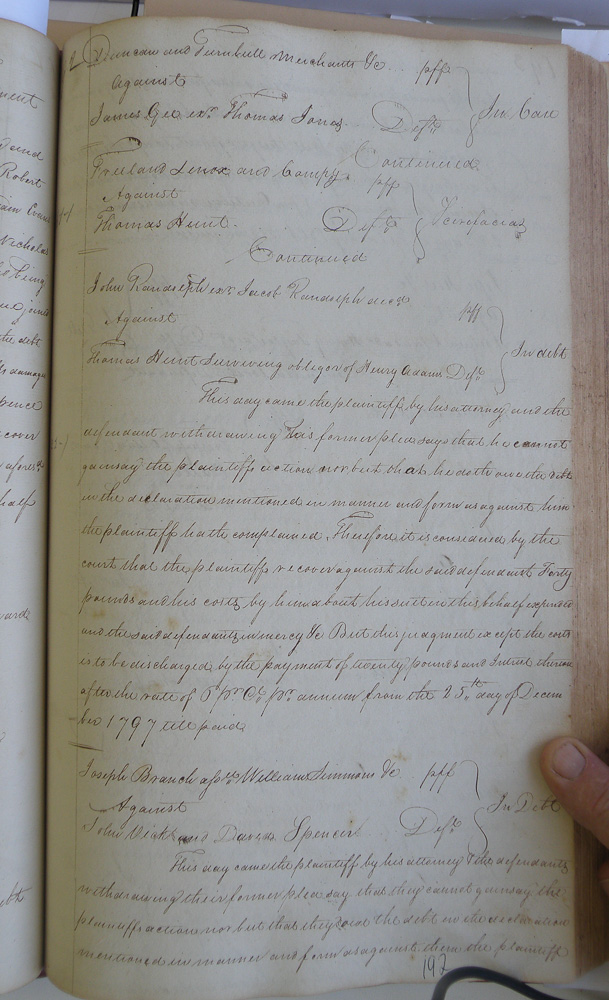 Duncan and Turnbull Merchants &c plff
Against
James Gee exr Thomas Jones Deft
In Case
Continued
Freeland Lenox and Compy. plff
Against
Thomas Hunt. Deft
Scirefacias
Continued
John Randolph exr Jacob Randolph decd
plff
Against
In debt
Thomas Hunt surviving obligor of Henry Adams Deft
This day came the plaintiff by his attorney and the
defendant withdrawing his former plea says that he cannot
gainsay the plaintiffs action nor but that he doth owe the debt
in the declaration mentioned in manner and form as against him
the plaintiff hath complained. Therefore it is considered by the
court that the plaintiff recover against the said defendant Forty
pounds and his costs by him about his suit in this behalf expended
and the said defendant in mercy &c But this judgment except the costs
is to be discharged by the payment of twenty pounds and interest thereon
after the rate of 5 pr Ct. pr annum from the 25th day of Decem
ber 1797 till paid
Joseph Branch assee William Simmons &c plff
Against
In Debt
John and David Spencer Defts
This day came the plaintiff by his attorney & the defendants
withdrawing their former plea say that they cannot gainsay the
plaintiffs action nor but that they owe the debt in the declaration
mentioned in manner and form as against them the plaintiff
192